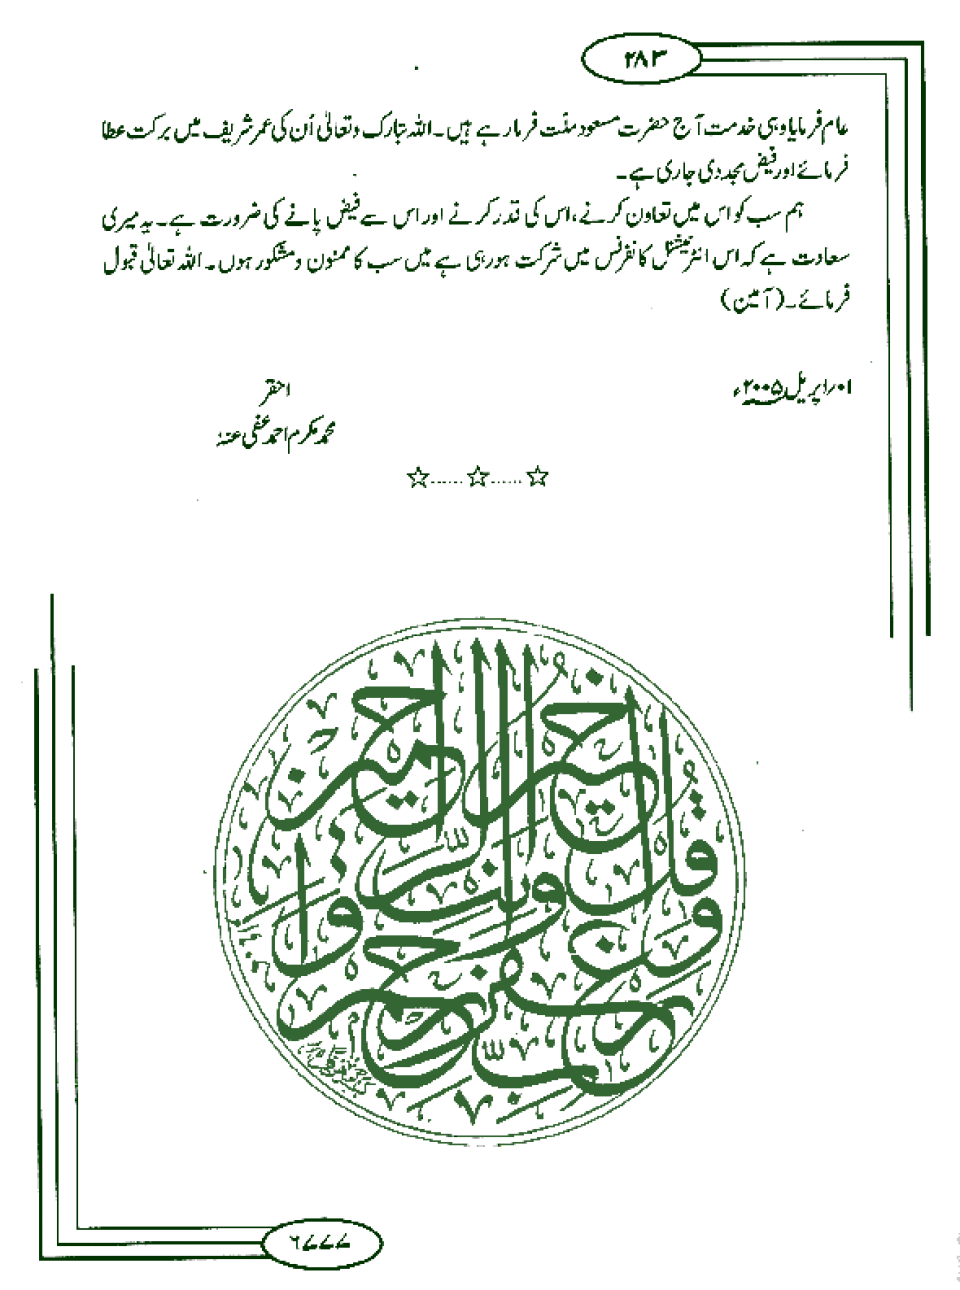 ۲۸۳
عام فرمایا وہی خدمت آج حضرت مسعود ملّت فرما رہے ہیں۔ اللہ تبارک وتعالیٰ اُن کی عمر شریف میں برکت عطا
فرمائے اور فیض مجددی جاری ہے۔
ہم سب کو اس میں تعاون کرنے، اس کی قدر کرنے اور اس سے فیض پانے کی ضرورت ہے۔ یہ میری
سعادت ہے کہ اس انٹرنیشنل کانفرنس میں شرکت ہو رہی ہے میں سب کا ممنون ومشکور ہوں۔ اللہ تعالیٰ قبول
فرمائے۔ (آمین)
۰۱؍اپریل ۲۰۰۵ء
احقر
محمد مکرم احمد عفی عنہٗ
☆......☆......☆
وقل رب اغفر وارحم وانت خير الراحمين